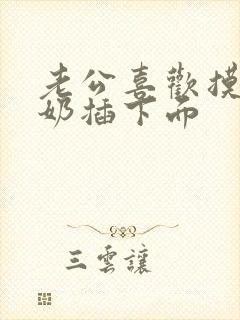 老公喜歡摸
奶插下面
三雲讓